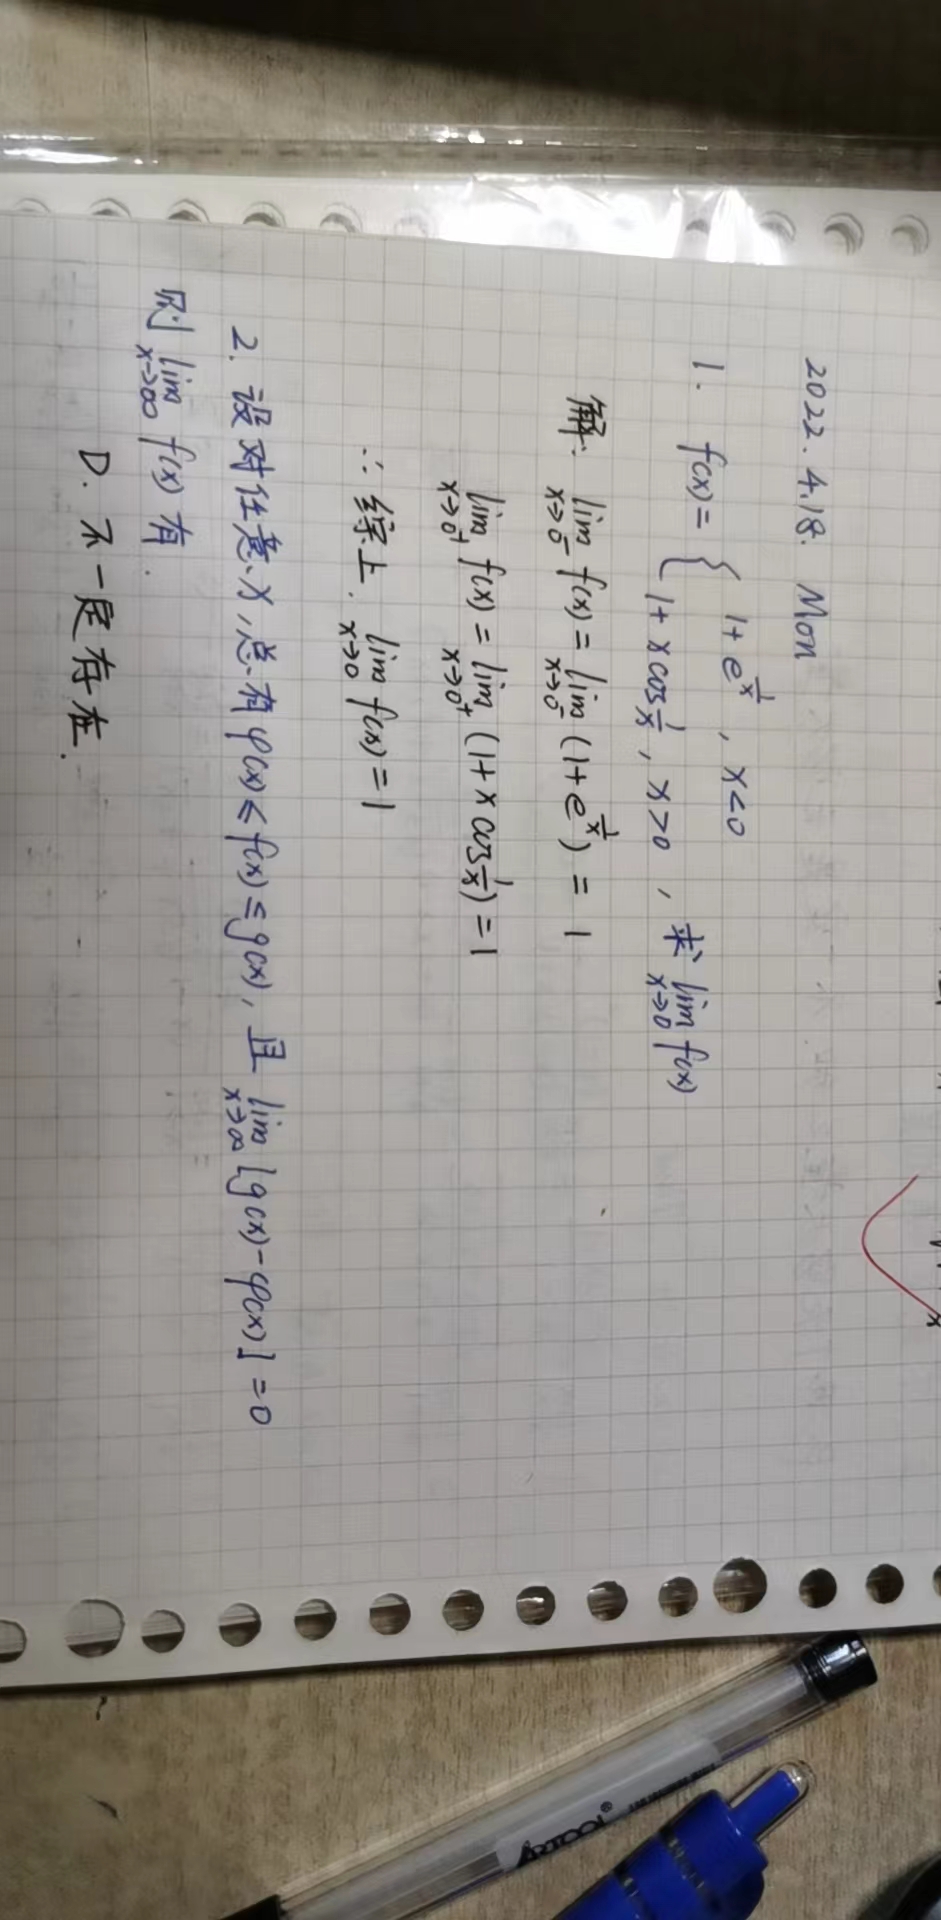 2022.4.18. Mon
1. f(x) = { 1+e^{\frac{1}{x}}, x<0
1+xcos\frac{1}{x}, x>0 , 求 \lim_{x→0} f(x)
解: \lim_{x→0^-} f(x) = \lim_{x→0^-} (1+e^{\frac{1}{x}}) = 1
\lim_{x→0^+} f(x) = \lim_{x→0^+} (1+xcos\frac{1}{x}) = 1
∴ 综上. \lim_{x→0} f(x) = 1
2. 设对任意x,总有φ(x)≤f(x)≤g(x), 且 \lim_{x→∞} [g(x)-φ(x)] = 0
则 \lim_{x→∞} f(x) 有.
D. 不一定存在.
ARTOOL®